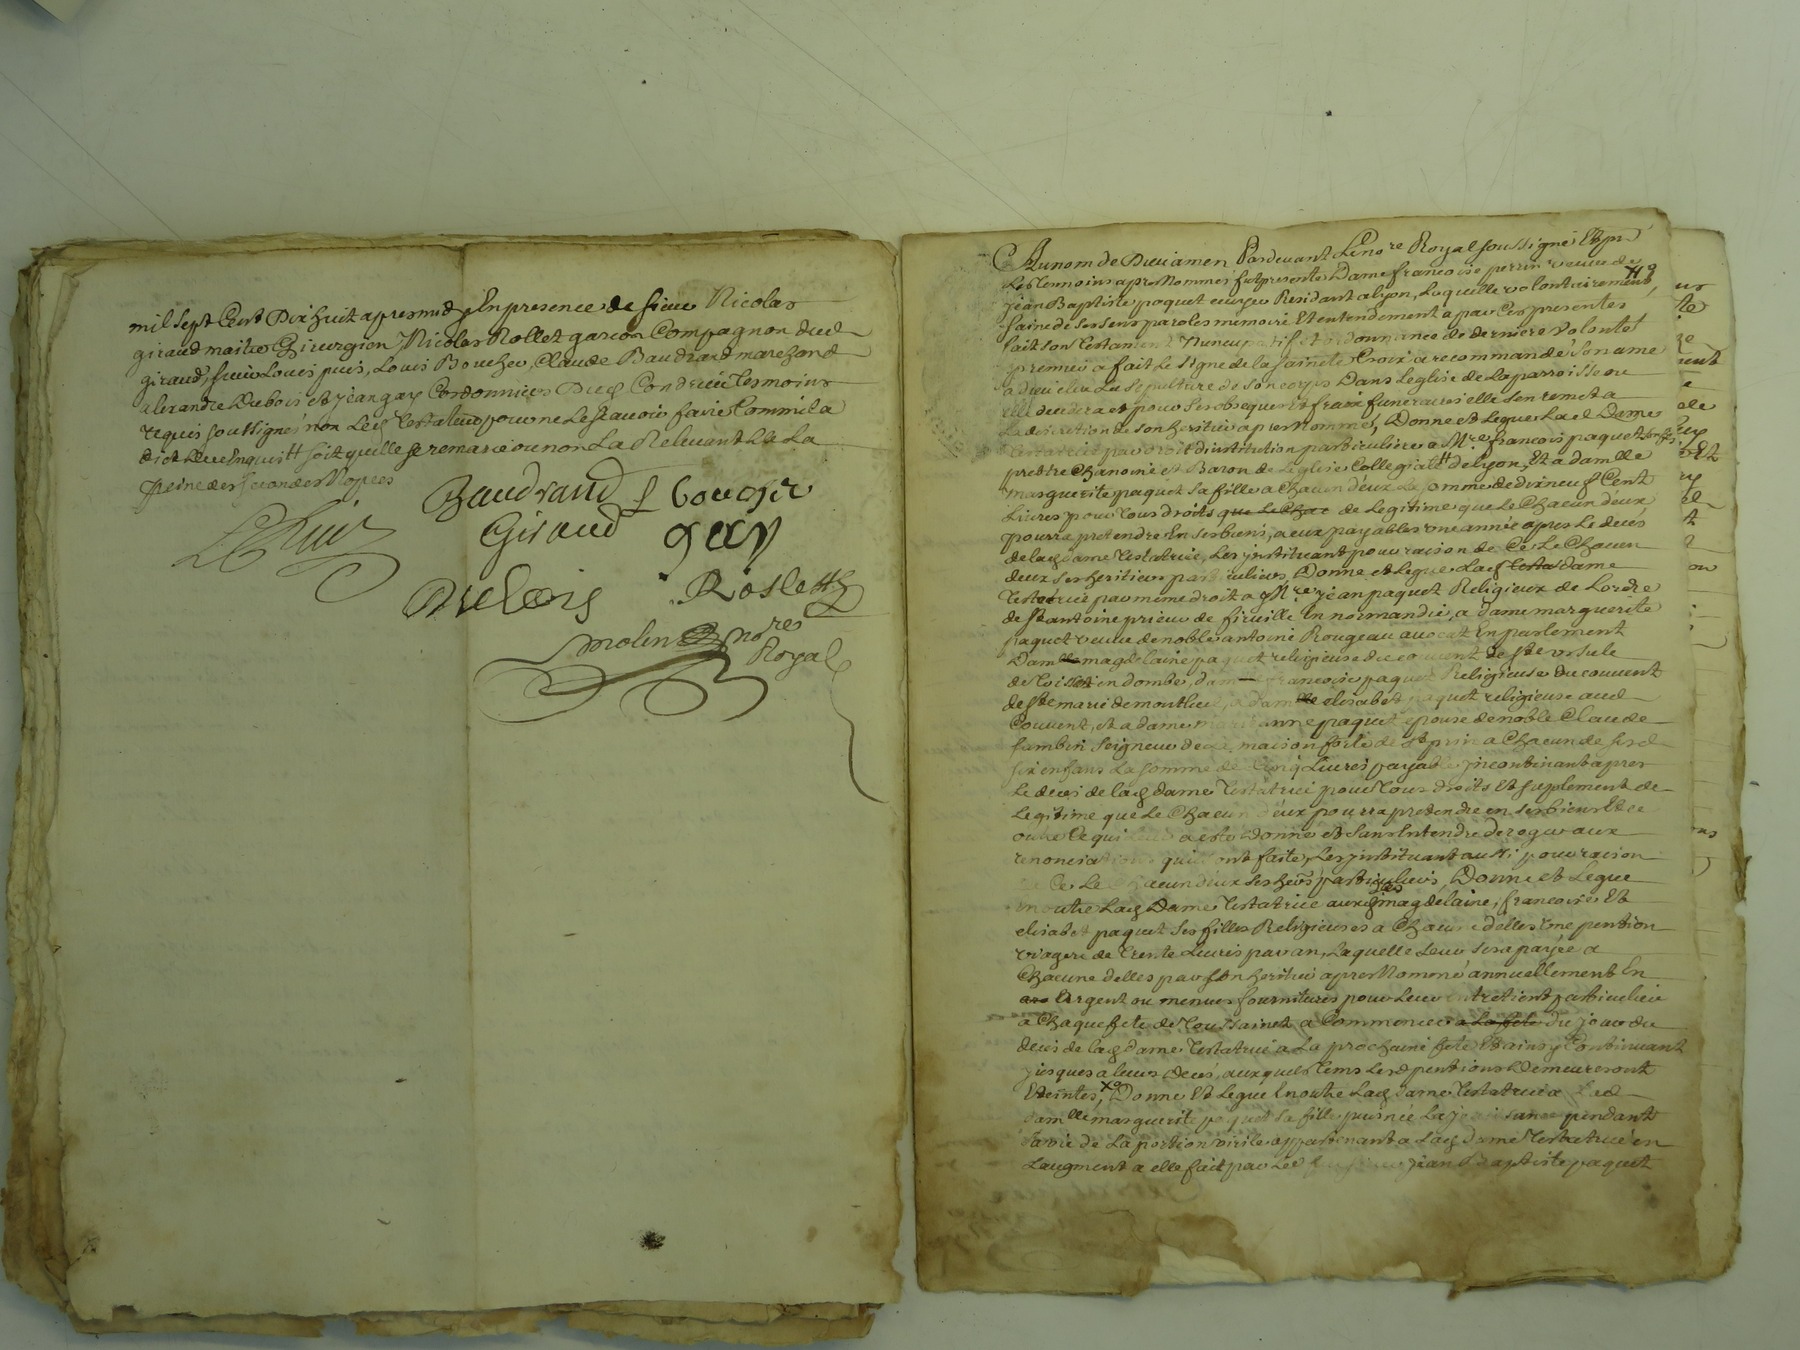 mil sept Cent Dix huit apres midy En presence de sieur Nicolas
giraud maitre Chirurgien Nicolas Rollet garcon Compagnon dud
giraud, sieur Louis puis, Louis Boucher, Claude Baudrand marchand
alexandre Dubois et jean gay Cordonniers Dud Condrieu tesmoins
requis soussignés non Led testateur pour ne le scavoir faire Comm'il a
dict de ce Enquis H soit quelle se remarie ou non La Relevant de La
peine des secondes Nopces
Baudrand L bouchr
LPuis Giraud gay
Dubois Rollett
molin nore
Royal
Au nom de Dieu amen Pardevant Le nore Royal soussigné Et pnt
Les temoins apres Nommés fut presente Dame francoise perrin veuve de
jean Baptiste paquet Residant a lyon, Laquelle volontairement,
saine de ses sens paroles memoire Et entendement a par Ces presentes
fait son testament Nuncupatif et ordonnance de derniere volonté
premier a fait Le signe de la sainte Croix a recommandé son ame
a dieu elu La sepulture de son corps Dans Leglise de La parroisse ou
elle decedera et pour ses obseques Et fraix funeraires elle sen remet a
La discretion de son heritier apres Nommé, Donne et Legue Lad Dame
testatrice par droit dinstitution particuliere a Mre francois paquet son fils
prestre Chanoine et Baron de Leglise Collegiale H de Lyon, Et a damlle
marguerite paquet sa fille a Chacun d'eux La somme de dix neuf Cent
Livres pour tous droits que Le Chac de Legitime que Le Chacun d'eux
pourra pretendre En ses biens, a eux payables une année apres Le deces
de lad dame testatrice, Les jnstituant pour raison de Ce Le Chacun
deux ses heritiers particuliers, Donne et Legue Lad testa dame
testatrice par meme droit a Mre jean paquet Religieux de Lordre
de st antoine prieur de firville En normandie, a dame marguerite
paquet veuve de noble antoine Rougeau avocat En parlement
Damlle magdelaine paquet religieuse du couvent de ste ursule
de toissei en dombe, dam francoise paquet Religieuse du couvent
de ste marie de montluel, a damlle elisabet paquet religieuse aud
Couvent, et a dame marianne paquet epouse de noble Claude
sambin seigneur de La maison forte de st prin a Chacun de sesd
six enfans La somme de Cinq Livres payable jncontinant apres
Le deces de lad dame testatrice pour tous droits Et suplement de
Legitime que Le Chacun d'eux pourra pretendre en ses biens Et ce
outre Ce qui leur a esté Donné et sans Entendre deroger aux
renonciations quils ont faite, Les jnstituant aussi pour raison
de Ce Le Chacun deux ses hers particuliers, Donne et Legue
en outre Lad Dame testatrice auxd magdelaine, francoise Et
elisabet paquet ses filles Religieuses a Chacune delles une pention
viagere de trente Livres par an, Laquelle Leur sera payée a
Chacune delles par son heritier apres Nommé annuellement En
Argent ou menues fournitures pour Leur entretient particulier
a Chaque fete de toussainct a Commencer a La fete du jour du
deces de lad dame testatrice a La prochaine fete Et ainsy Continuant
jusques a leurs deces, auxquels tems Lesd pentions Demeureront
Eteintes, X Donne Et Legue En outre Lad dame testatrice a Lad
damlle marguerite paquet sa fille puinée La jouissance pendant
sa vie de La portion virile appartenant a Lad dame testatrice en
Laugment a elle fait par Led jean Baptiste paquet